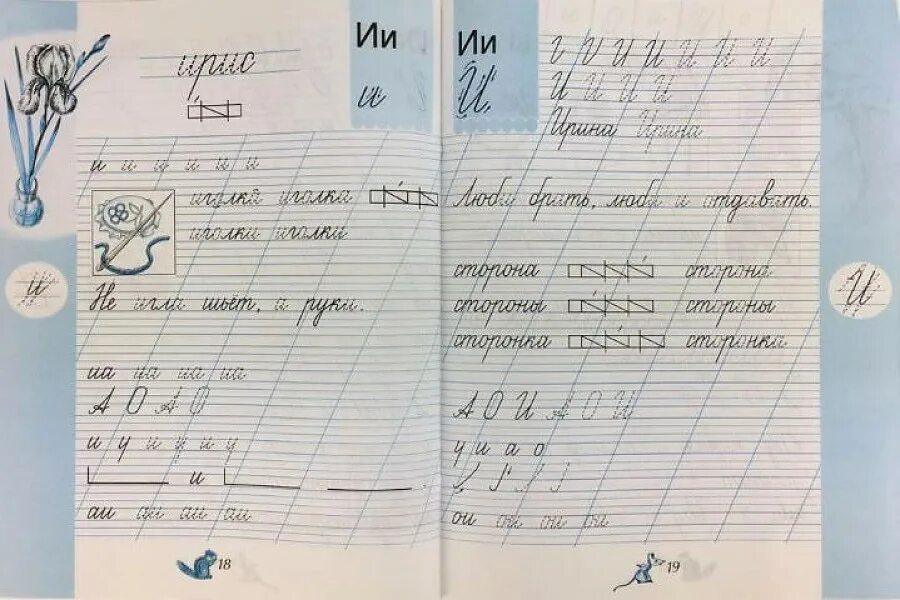 Ии
ирис
и
и и и и и и
иголка иголка
иголки иголки
и
Не игла шьёт, а руки.
иа иа иа иа
А О А О
и у и у и у
и
аи аи аи аи
18
Ии
И
И И И И И
И И И И
Ирина Ирина
Люби брать, люби и отдавать.
сторона сторона
стороны стороны
И
сторонка сторонка
А О И А О И
у и а о
ои ои ои ои
19